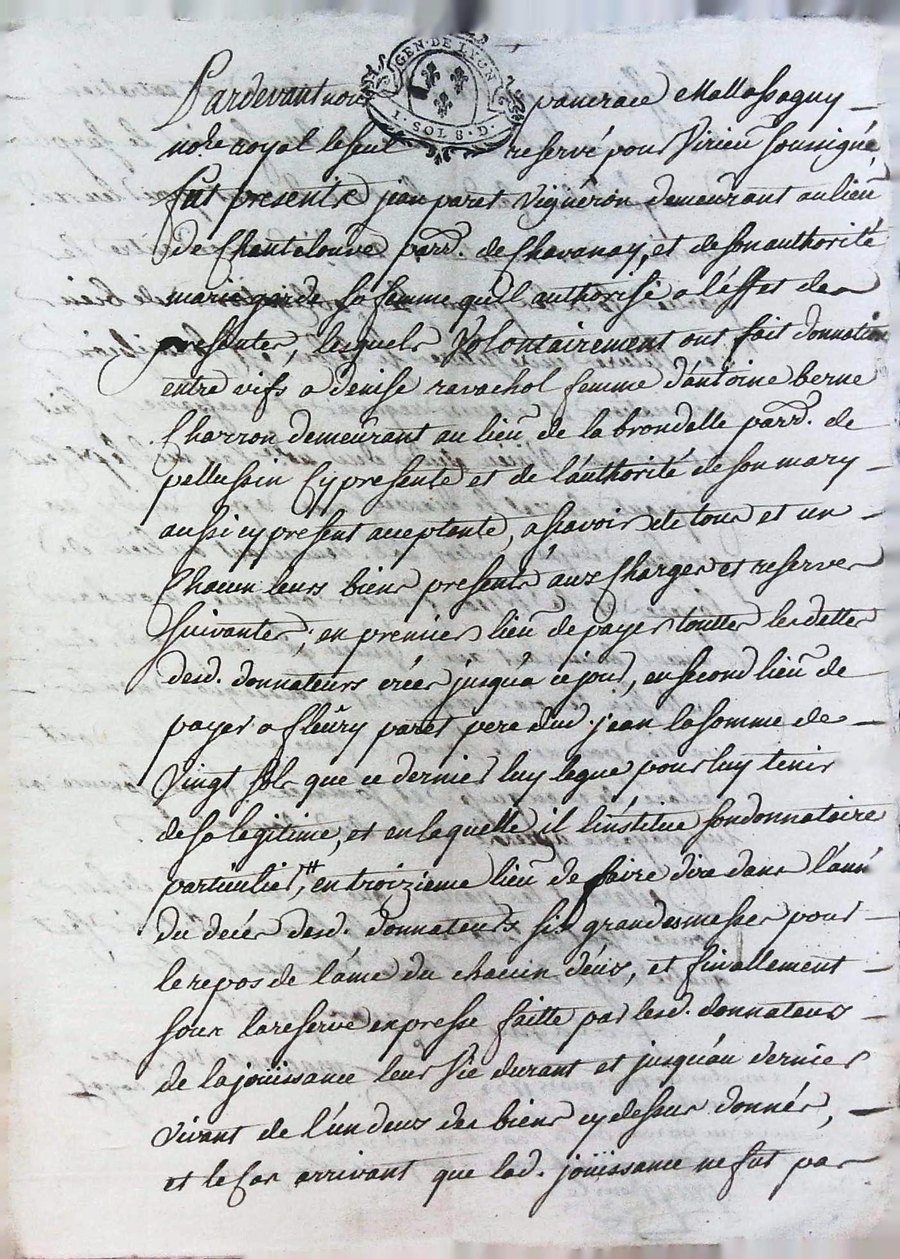 GEN. DE LYON
1. SOL 8. D.
Pardevant nous pancrace Mallassagny
no.re royal le seul reservé pour Virieu soussigné,
fut presents jean paret Vigneron demeurant au lieu
de Chantelouve parr. de Chavanay, et de son authorité
marie garde sa femme qu'il authorise a l'effet des
presentes, lesquels Volontairement ont fait donnation
entre vifs a denise ravachol femme d'antoine berne
Charron demeurant au lieu de la brondelle parr. de
pellussin Cy presente et de l'authorité de son mary
aussi cy present acceptante, a sçavoir de tous et un
Chacun leurs biens presents aux Charges et reserves
suivantes, en premier lieu de payer touttes les dettes
desd. donnateurs crées jusqu'a ce jour, en second lieu de
payer a fleury paret pere dud. jean la somme de
Vingt sols que ce dernier luy legue pour luy tenir
de sa legitime, et en laquelle il l'institue son donnataire
particulier, # en troizieme lieu de faire dire dans l'ann
du decés desd. donnateurs six grandes messes pour
le repos de l'ame du chacun d'eux, et finallement
sous la reserve expresse faitte par lesd. donnateurs
de la joüissance leur Vie durant et jusqu'au dernier
vivant de l'un deux des biens cy dessus donnés,
et le Cas arrivant que lad. joüissance ne fut pas